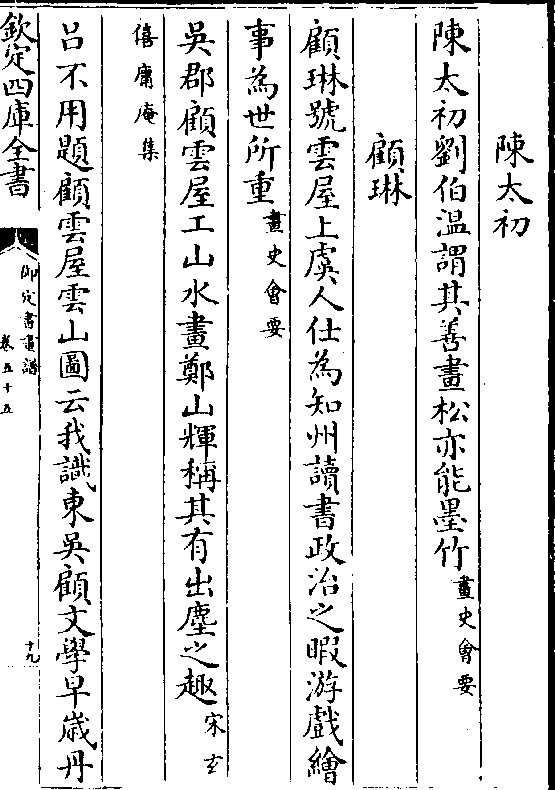 陳太初
陳太初劉伯溫謂其善畫松亦能墨竹畫史會要
顧琳
顧琳號雲屋上虞人仕為知州讀書政治之暇游戲繪
事為世所重畫史會要
吳郡顧雲屋工山水畫鄭山輝稱其有出塵之趣宋玄
僖庸庵集
呂不用題顧雲屋雲山圖云我識東吳顧文學早歲丹
欽定四庫全書
御定書畫譜
卷五十五
十九